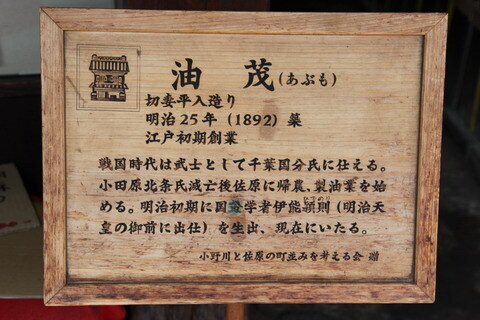 油茂(あぶも)
切妻平入造り
明治25年(1892)築
江戸初期創業
戦国時代は武士として千葉国分氏に仕える。
小田原北条氏滅亡後佐原に帰農、製油業を始
める。明治初期に国学者伊能穎則(明治天
皇の御前に出仕)を生出、現在にいたる。
小野川と佐原の町並みを考える会 贈